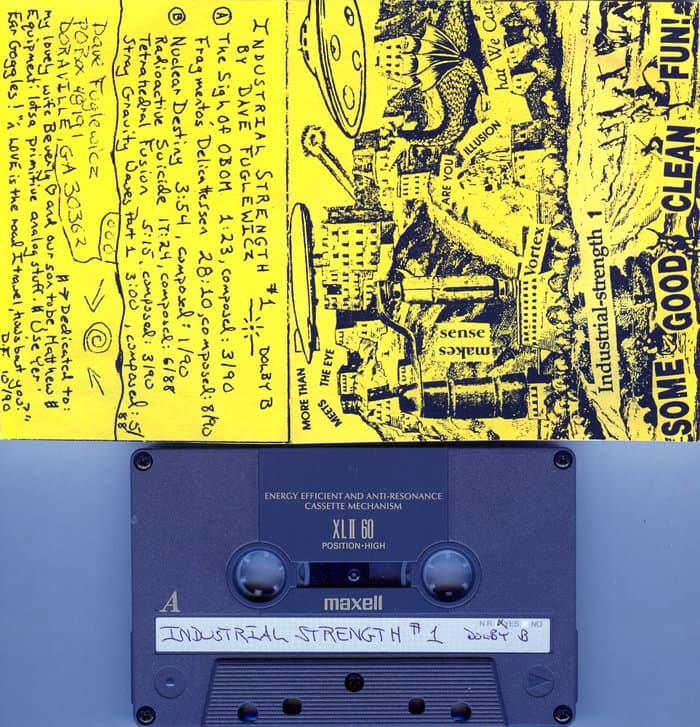 SOME GOOD CLEAN FUN!
Industrial-strength 1
hat We Ca
ARE YOU ILLUSION
Vortex
makes
sense
MORE THAN
MEETS THE EYE
INDUSTRIAL STRENGTH #1 DOLBY B
BY DAVE FUGLEWICZ
Ⓐ The Sigh Of OBOM 1:23, composed: 3/90
Fragmentos Delicatessen 28:10, composed: 8/90
Ⓑ Nuclear Destiny 3:54, composed: 1/90
Radioactive Suicide 17:24, composed: 6/88
Tetrahedral Fusion 5:15 composed: 3/90
Stray Gravity Waves Part 1 3:00, composed: 5/88
Dave Fuglewicz
PO Box 48191
DORAVILLE, GA 30362
# → Dedicated to:
my lovely wife Beverly ♡ and our son to be, Matthew #
Equipment: lotsa primitive analog stuff. # Use Yer
Ear Goggles! "LOVE is the road I travel, how 'bout you?"
D.F. 10/90
ENERGY EFFICIENT AND ANTI-RESONANCE
CASSETTE MECHANISM
XLII 60
POSITION•HIGH
A
maxell
N R YES NO
INDUSTRIAL STRENGTH #1 DOLBY B